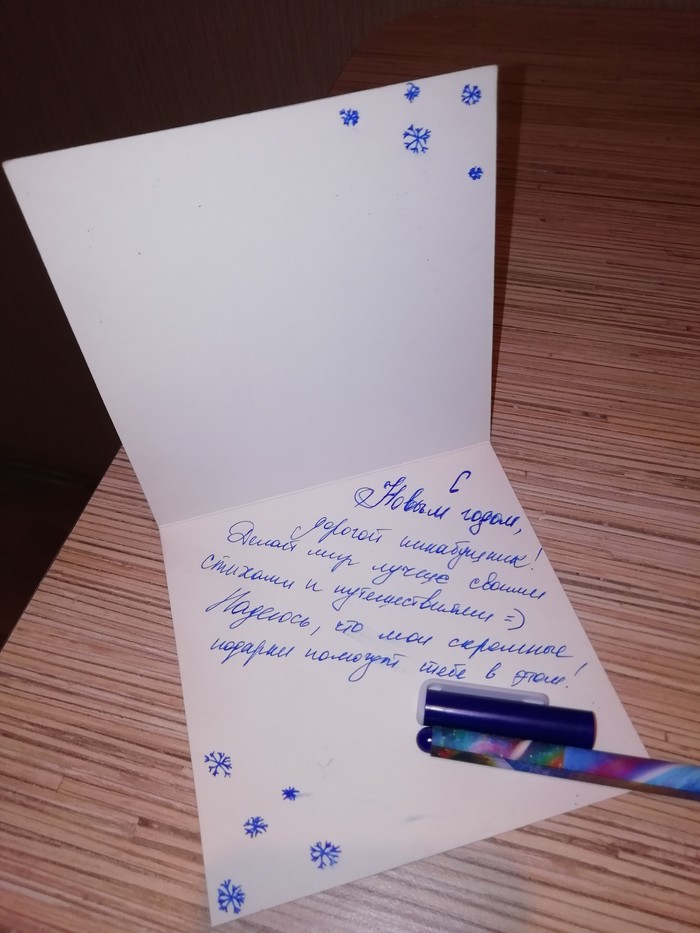 С
Новым годом,
дорогой пикабушник!
Делай мир лучше своими
стихами и путешествиями =)
Надеюсь, что мои скромные
подарки помогут тебе в этом!